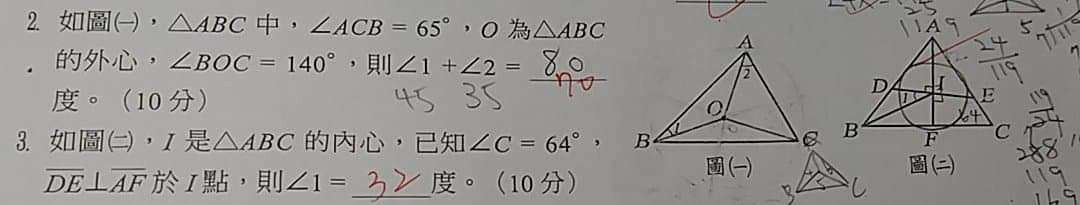 2. 如圖㈠,△ABC 中,∠ACB = 65°,O 為△ABC
的外心,∠BOC = 140°,則∠1 +∠2 = 80 70
度。(10 分) 45 35
3. 如圖㈡,I 是△ABC 的內心,已知∠C = 64°,
DE⊥AF 於 I 點,則∠1 = 32 度。(10 分)
A
2
O
B 1 C
圖㈠
B C
119
A
D I E
1 64
B F C
圖㈡
24
119
119
288
119
169